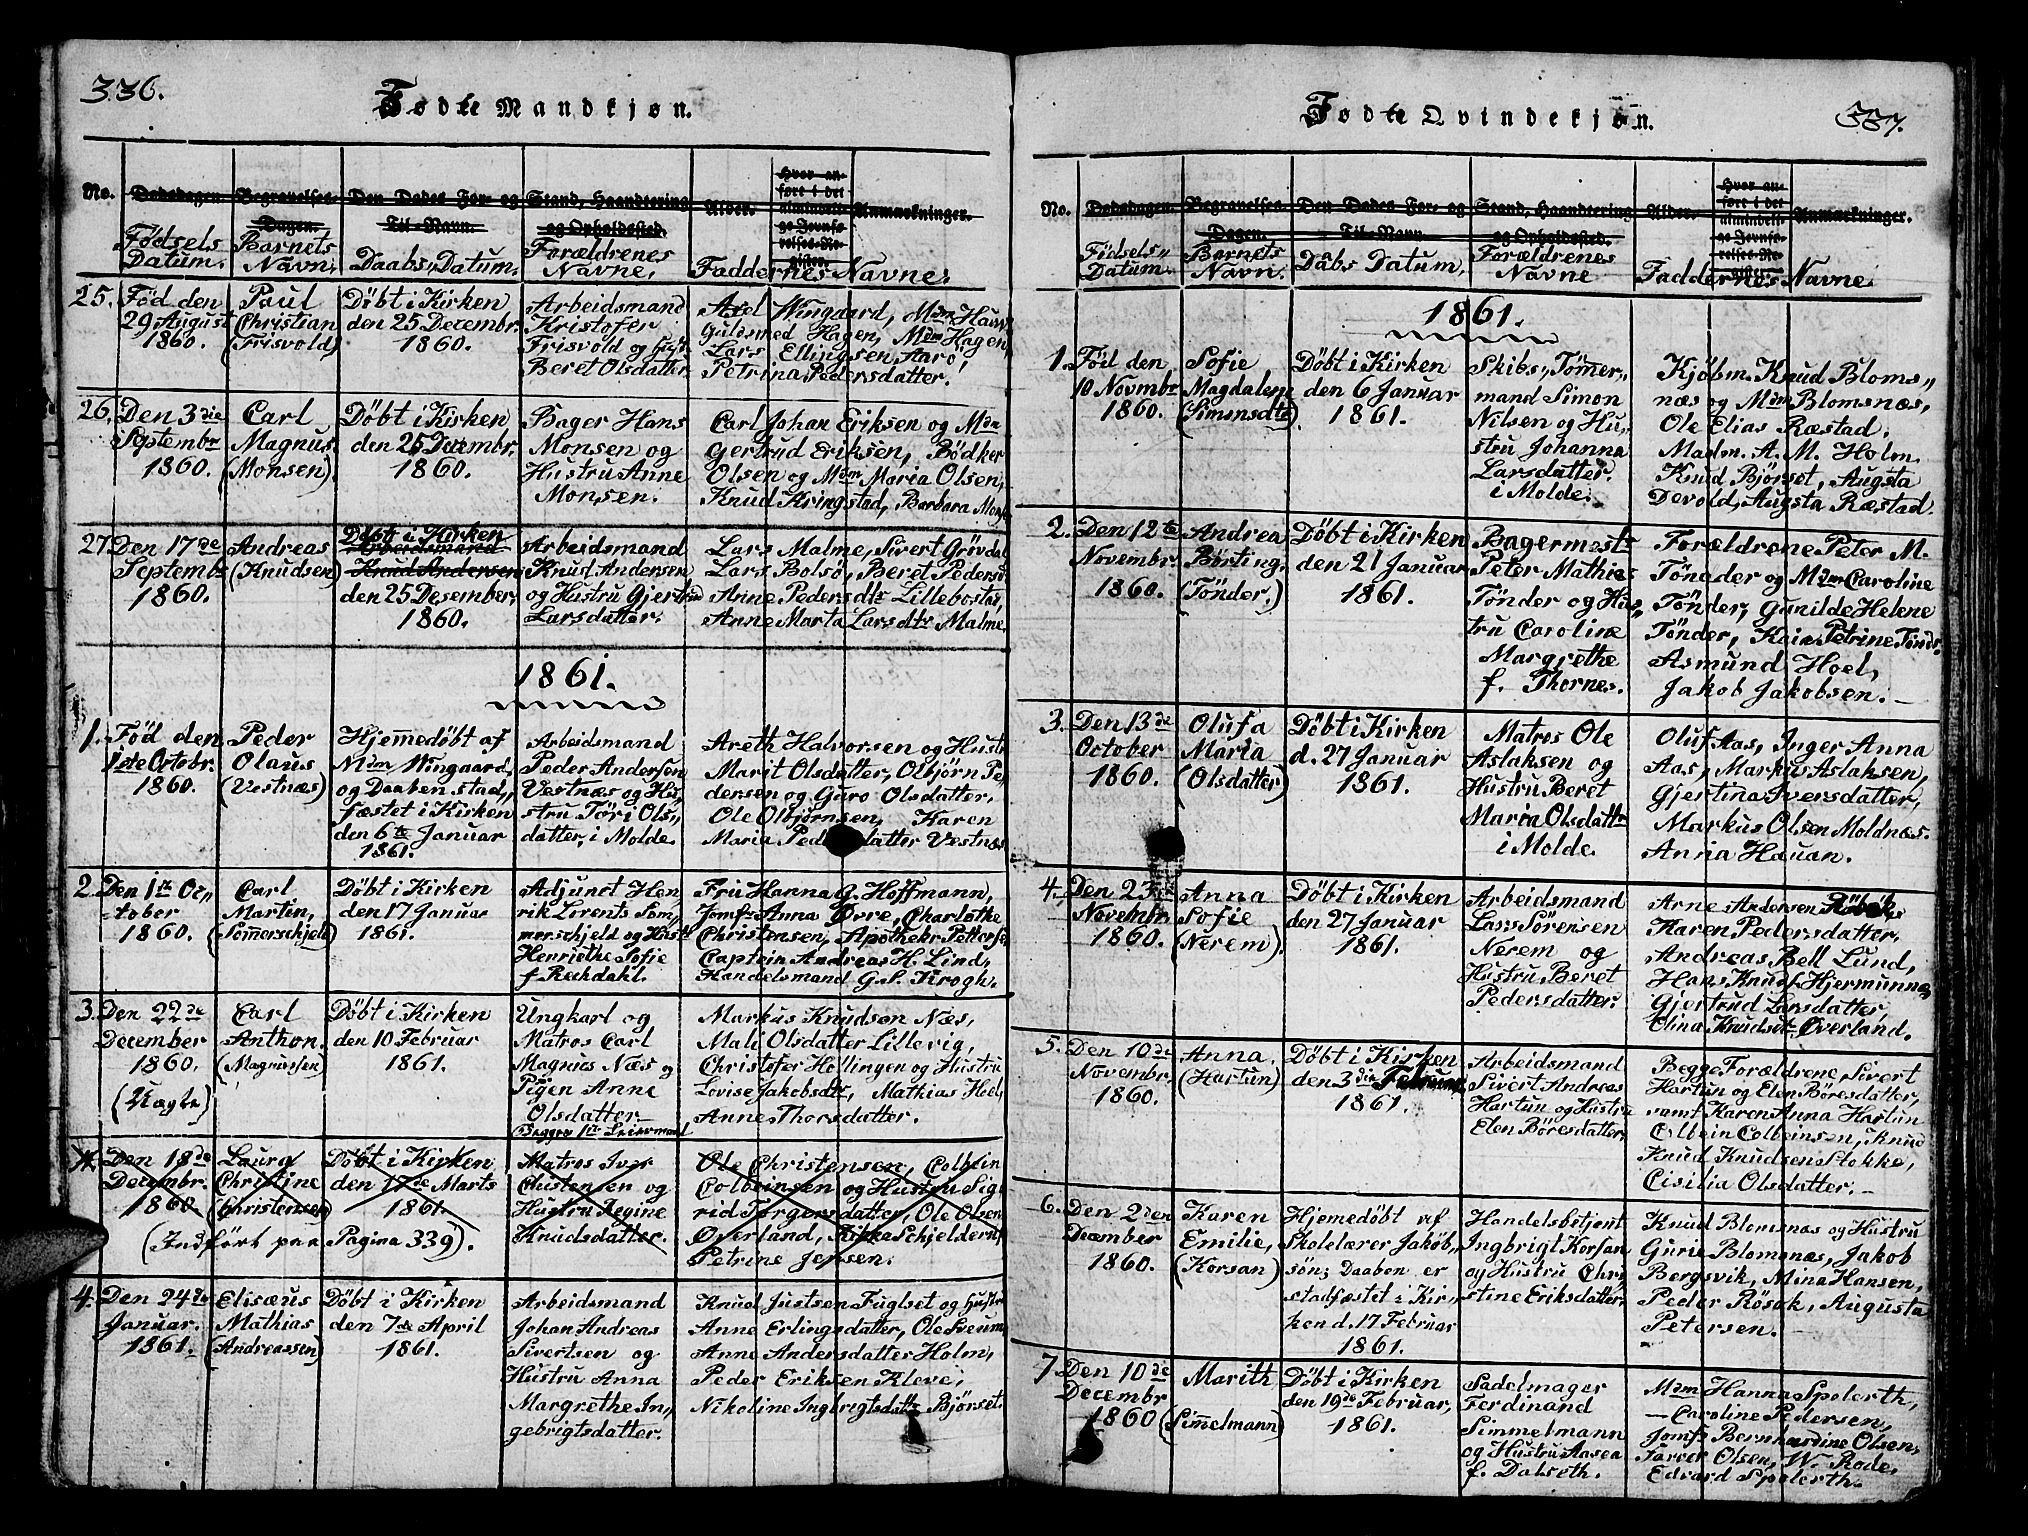 336.
Fødte Mandkjøn.
No.
Dødsdagen.
Begravelses-Dagen.
Den Dødes For- og Til-Navn.
Stand, Haandtering og Opholdssted.
Alder.
Hvor anført i det almindelige Jevnførelses-Register.
Anmærkninger.
Fødsels Datum.
Barnets Navn.
Daabs„Datum.
Forældrenes Navne.
Faddernes Navne.
25.
Fød den
29 August
1860.
Paul
Christian
(Frisvold)
Döbt i Kirken
den 25 Decembr.
1860.
Arbeidsmand
Kristofer
Frisvold og
Beret Olsdatter
Axel Wingaard, Mdm
Guldsmed Hagen, Mdm Hagen,
Lars Ellingsen Aarö,
Petrina Pedersdatter.
26.
Den 3die
Septembr
1860.
Carl
Magnus
(Monsen)
Döbt i Kirken
den 25 Decembr.
1860.
Bager Hans
Monsen og
Hustru Anne
Monsen.
Carl Johan Eriksen og Mdm
Gertrud Eriksen, Bödker
Olsen og Mdm Maria Olsen,
Knud Kringstad, Barbara
27.
Den 17de
Septembr
1860.
Andreas
(Knudsen)
Döbt i Kirken
Arbeidsmand
Knud Andersen
den 25 Desember,
1860.
Arbeidsmand
Knud Andersen
og Hustru Gjertrud
Larsdatter.
Lars Malme, Sivert
Lars Bolsö, Beret Pedersd
Anne Pedersdtr Lillebostad,
Anne Marta Larsdtr Malme.
1861.
1.
Fød den
1ste Octobr.
1860.
Peder
Olaus
(Vestnæs)
Hjemmedöbt af
Mdm Wingaard,
og Daaben stad„
fæstet i Kirken
den 6te Januar
1861.
Arbeidsmand
Peder Andersen
Vestnæs og Hu„
stru Töri Ols„
datter, i Molde.
Areth Halvorsen og Hustr
Marit Olsdatter, Olbjörn Pe„
dersen og Guro Olsdatter.
Ole Olbjörnsen, Karen
Maria Pedersdatter Vestnæs
2.
Den 1ste Oc„
tober
1860.
Carl
Martin,
(Sommerschjeld)
Döbt i Kirken
den 17 Januar
1861.
Adjunct Hen„
rik Lorents Som„
merschjeld og Hustr
Henriethe Sofie
f. Rechdahl.
Fru Hanna G. Hoffmann,
Jomfr Anna Örre, Charlothe
Christensen, Apothekr Petterse
Captein Andreas H. Lind,
Handelsmand G. S. Krogh.
3.
Den 22de
December
1860.
(Uægte)
Carl
Anthon.
(Magnussen)
Döbt i Kirken
den 10 Februar
1861.
Ungkarl og
Matros Carl
Magnus Næs og
Pigen Anne
Olsdatter
Begges 1ste Leiermaal
Markus Knudsen Næs,
Mali Olsdatter Lillevig,
Christofer Hollingen og Hustru
Lovise Jakobsdtr, Mathias Hol,
Anne Thorsdatter.
4.
Den 18de
Decembr.
1860.
Laura
Christine
(Christensen)
Döbt i Kirken
den 17de Marts
1861.
(Indfört paa Pagina 339).
Matros Iver
Christensen og
Hustru Regine
Knudsdatter.
Ole Christensen, Colbein
Colbeinsen og Hustru Sig„
rid Torgersdatter, Ole Olsen
Overland, Rikke Schjelderu
Petrine Jensen.
4.
Den 24de
Januar.
1861.
Elisæus
Mathias
(Andreassen)
Döbt i Kirken
den 7de April
1861.
Arbeidsmand
Johan Andreas
Sivertsen og
Hustru Anna
Margrethe In„
gebrigtsdatter.
Knud Justsen Fuglset og Hustr
Anne Erlingsdatter, Ole Sveum
Anne Andersdatter Holm,
Peder Eriksen Kleve,
Nikoline Ingbrigtsdattr Björset.
337.
Fødte Qvindekjøn.
No.
Dødsdagen.
Begravelses-Dagen.
Den Dødes For- og Til-Navn.
Stand, Haandtering og Opholdssted.
Alder.
Hvor anført i det almindelige Jevnførelses-Register.
Anmærkninger.
Fødsels„Datum.
Barnets Navn.
Dåbs Datum,
Forældrenes Navne
Faddernes Navne
1861.
1.
Föd den
10 Novmbr
1860.
Sofie
Magdalene
(Simonsdtr)
Döbt i Kirken
den 6 Januar
1861.
Skibs„Tömer„
mand Simon
Nilsen og Hu„
stru Johanna
Larsdatter.
i Molde.
Kjöbm. Knud Bloms„
næs og Mdm Blomsnæs,
Ole Elias Ræstad.
Madm. A. M. Holm.
Knud Björset, Augsta
Devold, Augsta Ræstad.
2.
Den 12te
Novembr.
1860.
Andrea
Börting.
(Tönder.)
Döbt i Kirken
den 21 Januar
1861.
Bagermestr
Peter Mathias
Tönder og Hus„
tru Caroline
Margrethe
f. Thornes.
Forældrene Peter M.
Tönder og Mdm Caroline
Tönder, Gunilde Helene
Tönder, Kaia Petrine Tönd
Asmund Hoel,
Jakob Jakobsen.
3.
Den 13de
October
1860.
Olufa
Maria
(Olsdatter)
Döbt i Kirken
d. 27 Januar
1861.
Matros Ole
Aslaksen og
Hustru Beret
Maria Olsdattr
i Molde.
Oluf Aas, Inger Anna
Aas, Markus Aslaksen,
Gjertina Iversdatter,
Markus Olsen Moldnæs.
Anna Hauan.
4.
Den 23de
Novembr.
1860.
Anna
Sofie
(Nerem).
Döbt i Kirken
den 27 Januar
1861.
Arbeidsmand
Lars Sörensen
Nerem og
Hustru Beret
Pedersdatter.
Arne Andersen
Karen Pedersdatter,
Andreas Bell Lund,
Hans Knuds Hjermunnæs
Gjertrud Larsdatter,
Elina Knudsdtr Överland.
5.
Den 10de
Novembr.
1860.
Anna.
(Hartun)
Döbt i Kirken
den 3die Februar
1861.
Arbeidsmand
Sivert Andreas
Hartun og Hustru
Elen Böresdatter.
Begge Forældrene Sivert
Hartun og Elen Böresdatter,
samt Karen Anna Hartun
Colbein Colbeinsen, Knud
Knud Knudsen Stokke,
Cisilia Olsdatter.
6.
Den 2den
December
1860.
Karen
Emilie,
(Korsan)
Hjemedöbt af
Skolelærer Jakob„
sön; Daaben er
stadfæstet i Kir„
ken d. 17 Februar
1861.
Handelsbetjent
Ingbrigt Korsan
og Hustru Chri„
stine Eriksdatter.
Knud Blomsnæs og Hustru
Gurie Blomsnæs, Jakob
Bergsvik, Mina Hansen,
Peder Rösok, Augusta
Petersen.
7.
Den 10de
Decembr
1860
Marith
(Simelmann)
Döbt i Kirken
den 19de Februar,
1861.
Sadelmager
Ferdinand
Simmelmann
og Hustru Aasea
f. Dalseth.
Mdm Hanna Spolerth,
— Caroline Pedersen,
Jomfr Bernhardine Olsen,
Farver Olsen, W. Rode,
Edvard Spolerth.